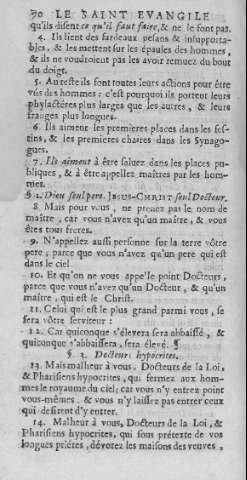 70 LE SAINT EVANGILE
qu'ils disent ce qu'il faut faire, & ne le font pas.
4. Ils lient des fardeaux pesans & insupporta-
bles, & les mettent sur les épaules des hommes,
& ils ne voudroient pas les avoir remuez du bout
du doigt.
5. Au reste ils font toutes leurs actions pour être
vûs des hommes : c'est pourquoi ils portent leurs
phylactéres plus larges que les autres, & leurs
franges plus longues.
6. Ils aiment les premieres places dans les fes-
tins, & les premieres chaires dans les Synago-
gues.
7. Ils aiment à être saluez dans les places pu-
bliques, & à être appellez maîtres par les hom-
mes.
§ 2. Dieu seul pere. JESUS-CHRIST seul Docteur.
8. Mais pour vous, ne prenez pas le nom de
maître, car vous n'avez qu'un maître, & vous
êtes tous freres.
9. N'appellez aussi personne sur la terre vôtre
pere; parce que vous n'avez qu'un pere qui est
dans le ciel.
10. Et qu'on ne vous appelle point Docteurs,
parce que vous n'avez qu'un Docteur, & qu'un
maître, qui est le Christ.
11. Celui qui est le plus grand parmi vous, se
sera vôtre serviteur :
12. Car quiconque s'élevera sera abbaissé, &
quiconque s'abbaissera, sera élevé. ¶
§ 3. Docteurs hypocrites.
13. Mais malheur à vous, Docteurs de la Loi,
& Pharisiens hypocrites, qui fermez aux hom-
mes le royaume du ciel; car vous n'y entrez point
vous-mêmes, & vous n'y laissez pas entrer ceux
qui desirent d'y entrer.
14. Malheur à vous, Docteurs de la Loi, &
Pharisiens hypocrites, qui sous prétexte de vos
longues priéres, dévorez les maisons des veuves,